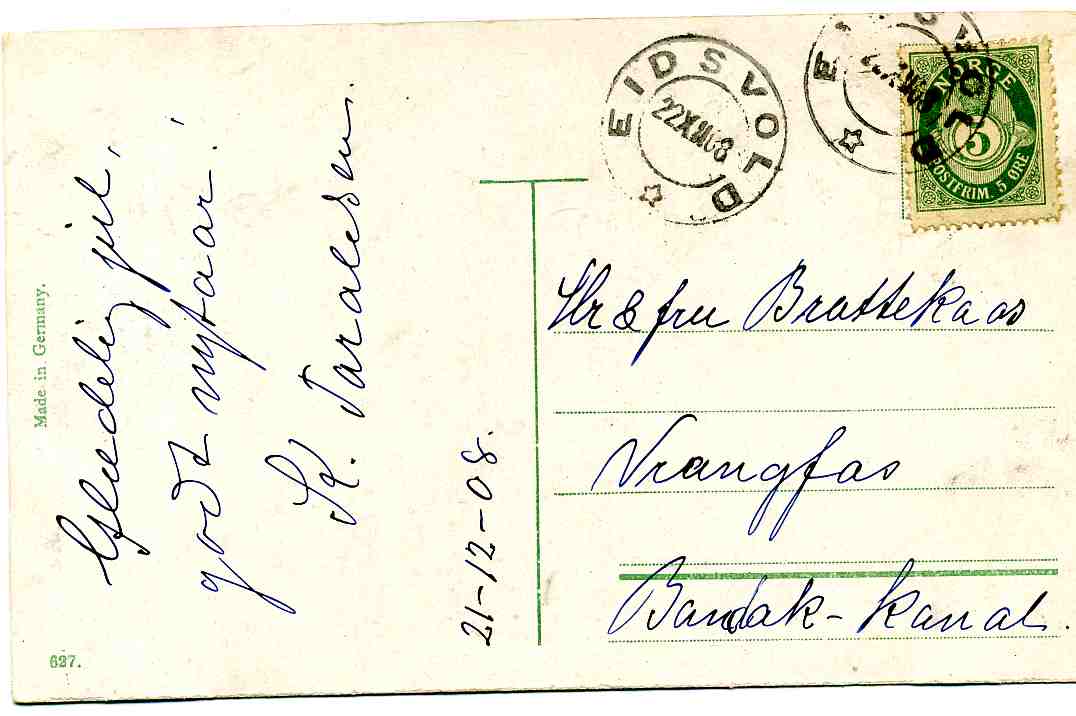 Glædelig jul,
godt nytaar!
K. Taraldsen
21-12-08.
Made in Germany.
627.
EIDSVOLD
22 XII 08
EIDSVOLD
22 XII 08
NORGE
5
POSTFRIM. 5 ØRE
Hr & fru Brattekaas
Vrangfos
Bandak-kanal.